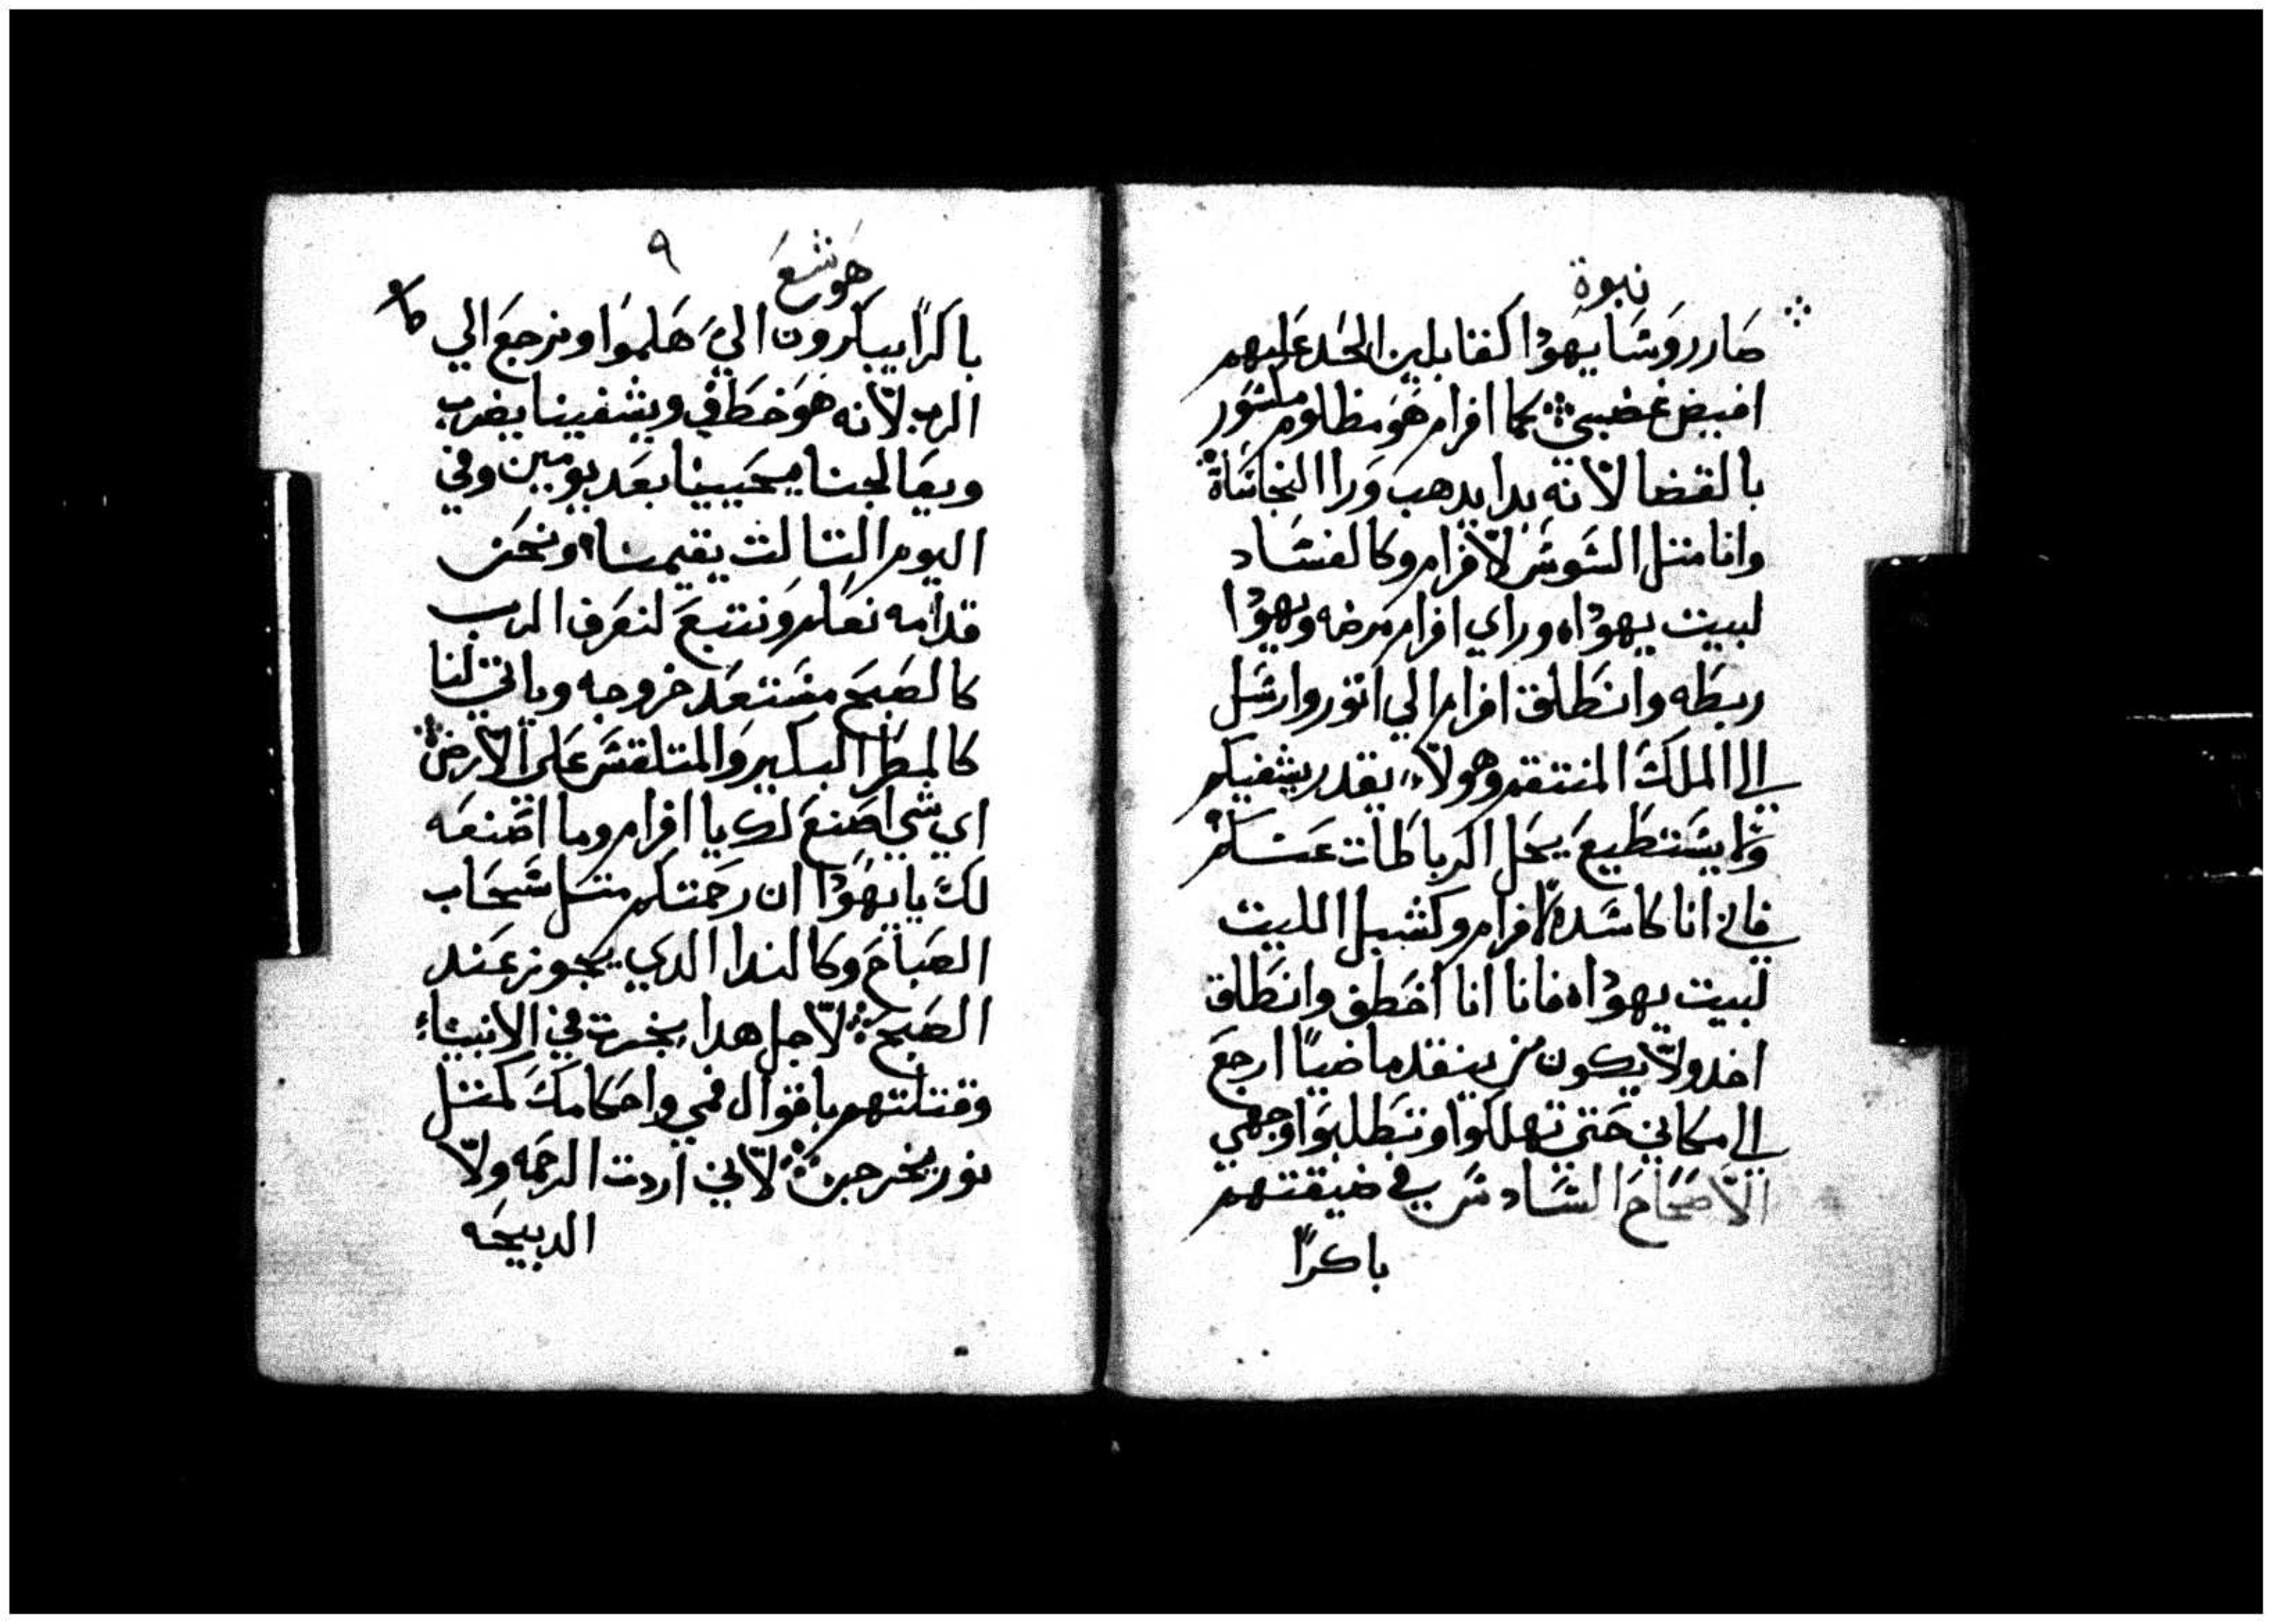 نبوة
صار روسا يهودا كقتابلين الحد عليهم
افيض غضبي كما افرام هو مظلوم مكسور
بالقضا لانه بدا يدهب ورا النجاساة
وانا متل السوس لافرام وكالفساد
لبيت يهودا وراي افرام مرضه ويهودا
ربطه وانطلق افرام الي اتور وارسل
الي الملك المنتقم وهولاء يقدر يشفيكم
ولا يستطيع يحل الرباطات عنكم
فاني انا كاسد لافرام وكشبل الليث
لبيت يهودا فانا انا اخطف وانطلق
اخد ولا يكون من ينقد ماضيا ارجع
الي مكاني حتي تهلكوا وتطلبوا وجهي
الاصحاح السادس في ضيقتهم
باكرا
هوشع ٩
باكرا يباكرون الي هلموا ونرجع الي
الرب لانه هو خطف ويشفينا يضرب
ويعالجنا يحيينا بعد يومين وفي
اليوم التالت يقيمنا ونحن
قدامه نعلم ونتبع لنعرف الرب
كالصبح مستعد خروجه وياتي لنا
كالمطر البكير والمتلقس علي الارض
اي شي اصنع لك يا افرام وما اصنعه
لك يا يهودا ان رحمتكم متل سحاب
الصباح وكالندا الدي يجوز عند
الصبح لاجل هدا نجرت في الانبياء
وقتلتهم باقوال فمي واحكامك كمتل
نور يخرجن لاني اردت الرحمه ولا
الدبيحه